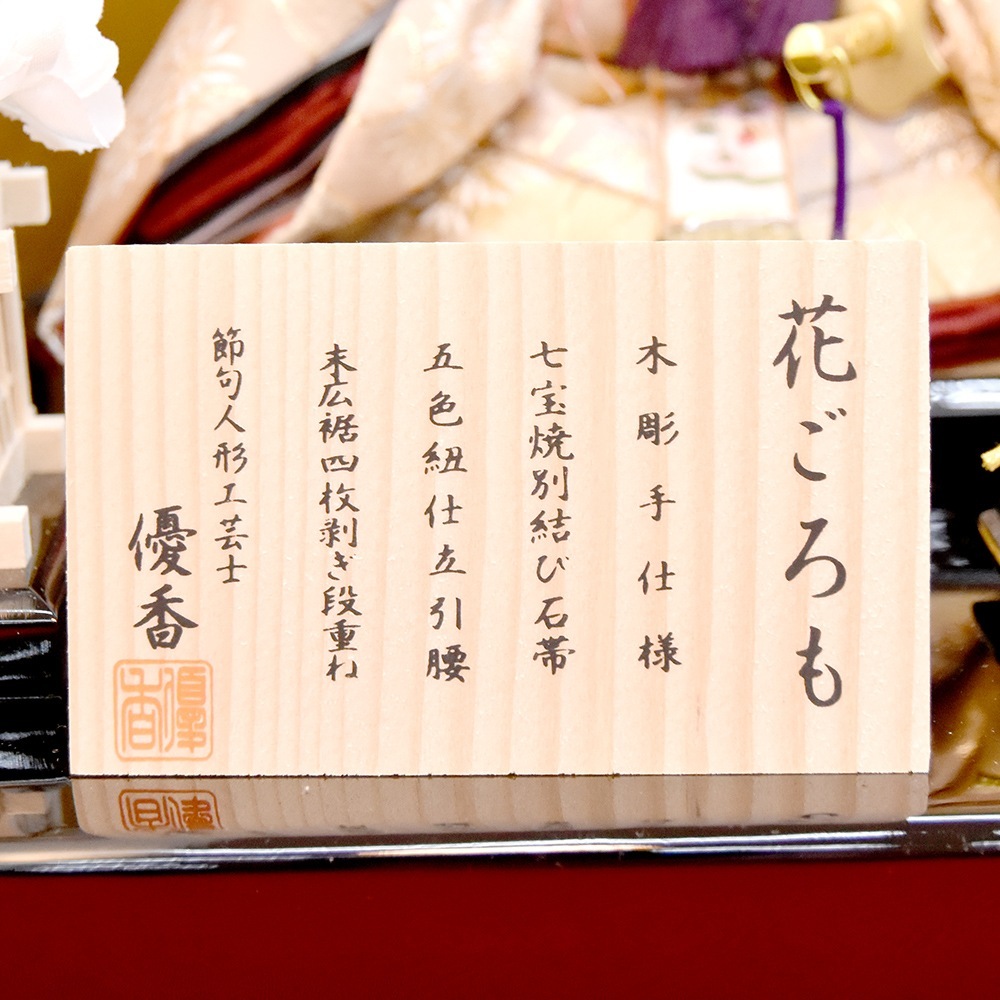 花ごろも
木彫手仕様
七宝焼別結び石帯
五色紐仕立引腰
末広裾四枚剥ぎ段重ね
節句人形工芸士
優香
優香